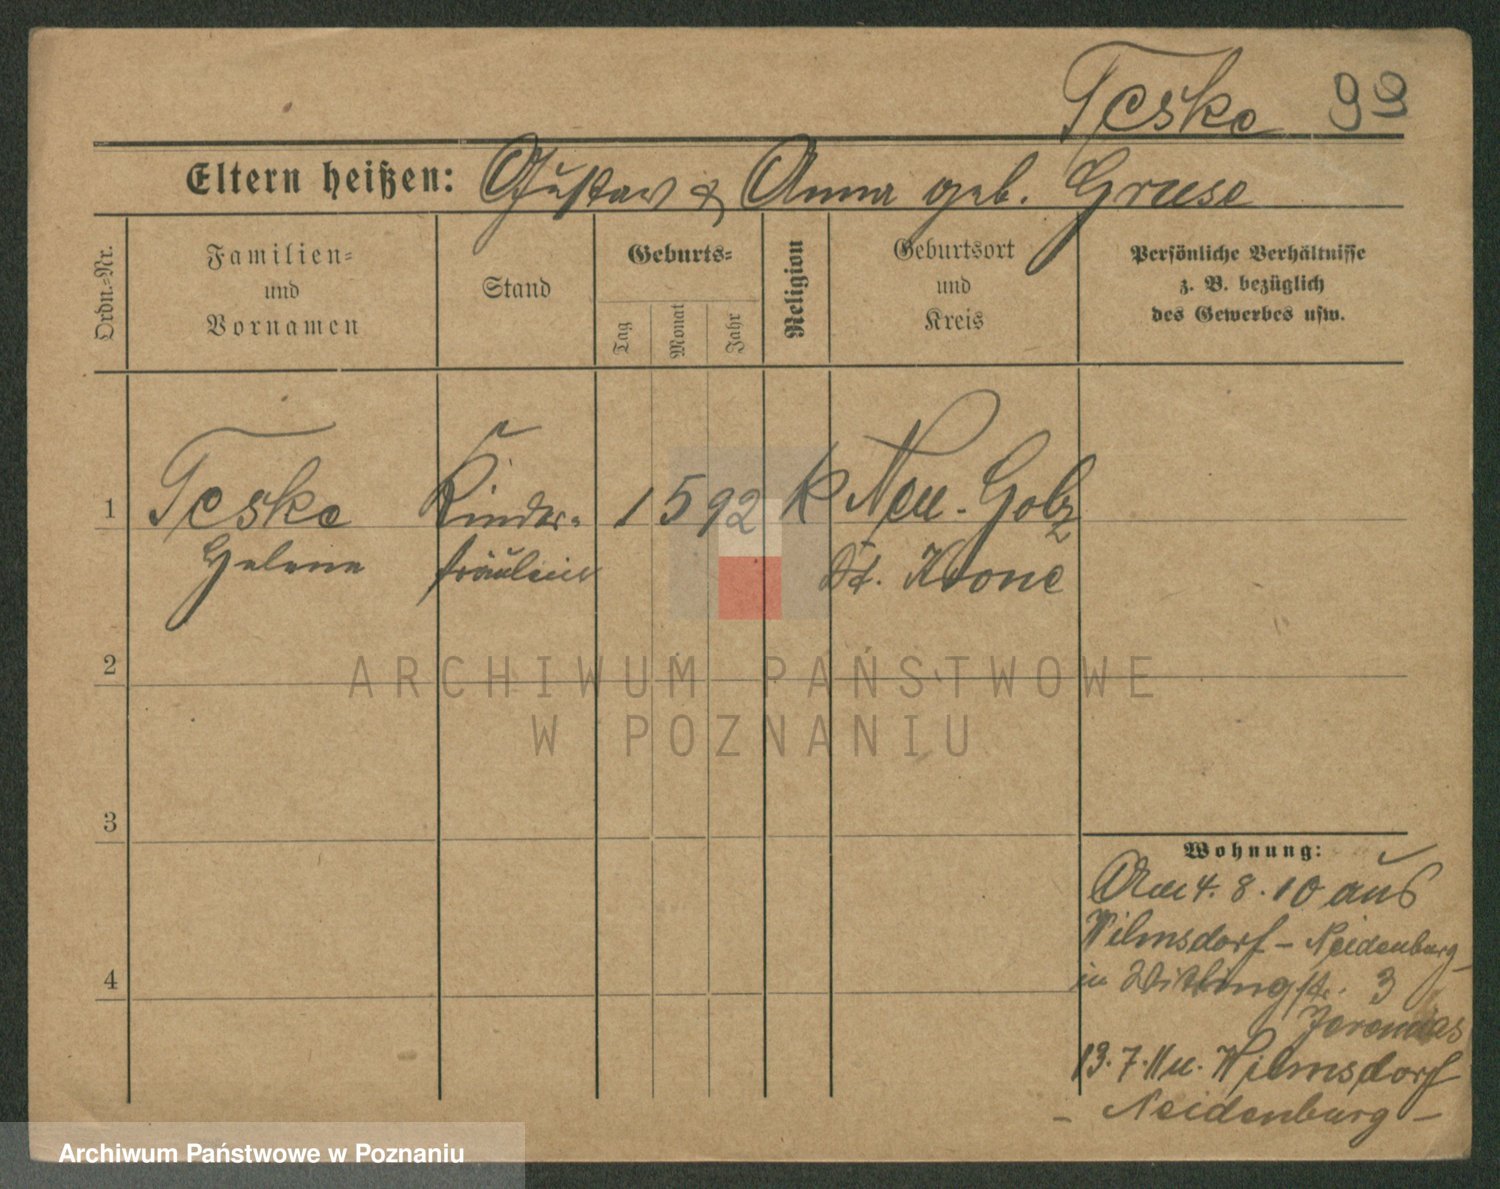 Teske 99
Eltern heißen: Gustav & Anna geb. Gruse
Ordn.-Nr.
Familien-
und
Vornamen
Stand
Geburts-
Tag
Monat
Jahr
Religion
Geburtsort
und
Kreis
Persönliche Verhältnisse
z. B. bezüglich
des Gewerbes usw.
1 Teske Kinder- 1 5 92 k Neu-Golz
Helene fräulein Dt. Krone
2
3
4
Wohnung:
4.8.10 aus
Wilmsdorf - Neidenburg
in str. 3
Jeremias
13.7.11 n. Wilmsdorf
- Neidenburg -
ARCHIWUM PAŃSTWOWE
W POZNANIU
Archiwum Państwowe w Poznaniu